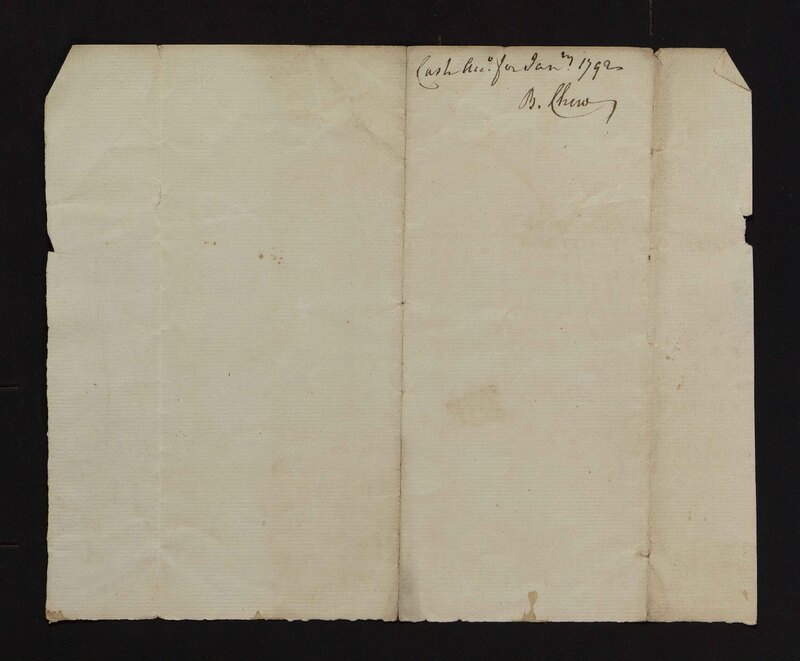 Cash Acco. for Janry. 1792
B. Chew